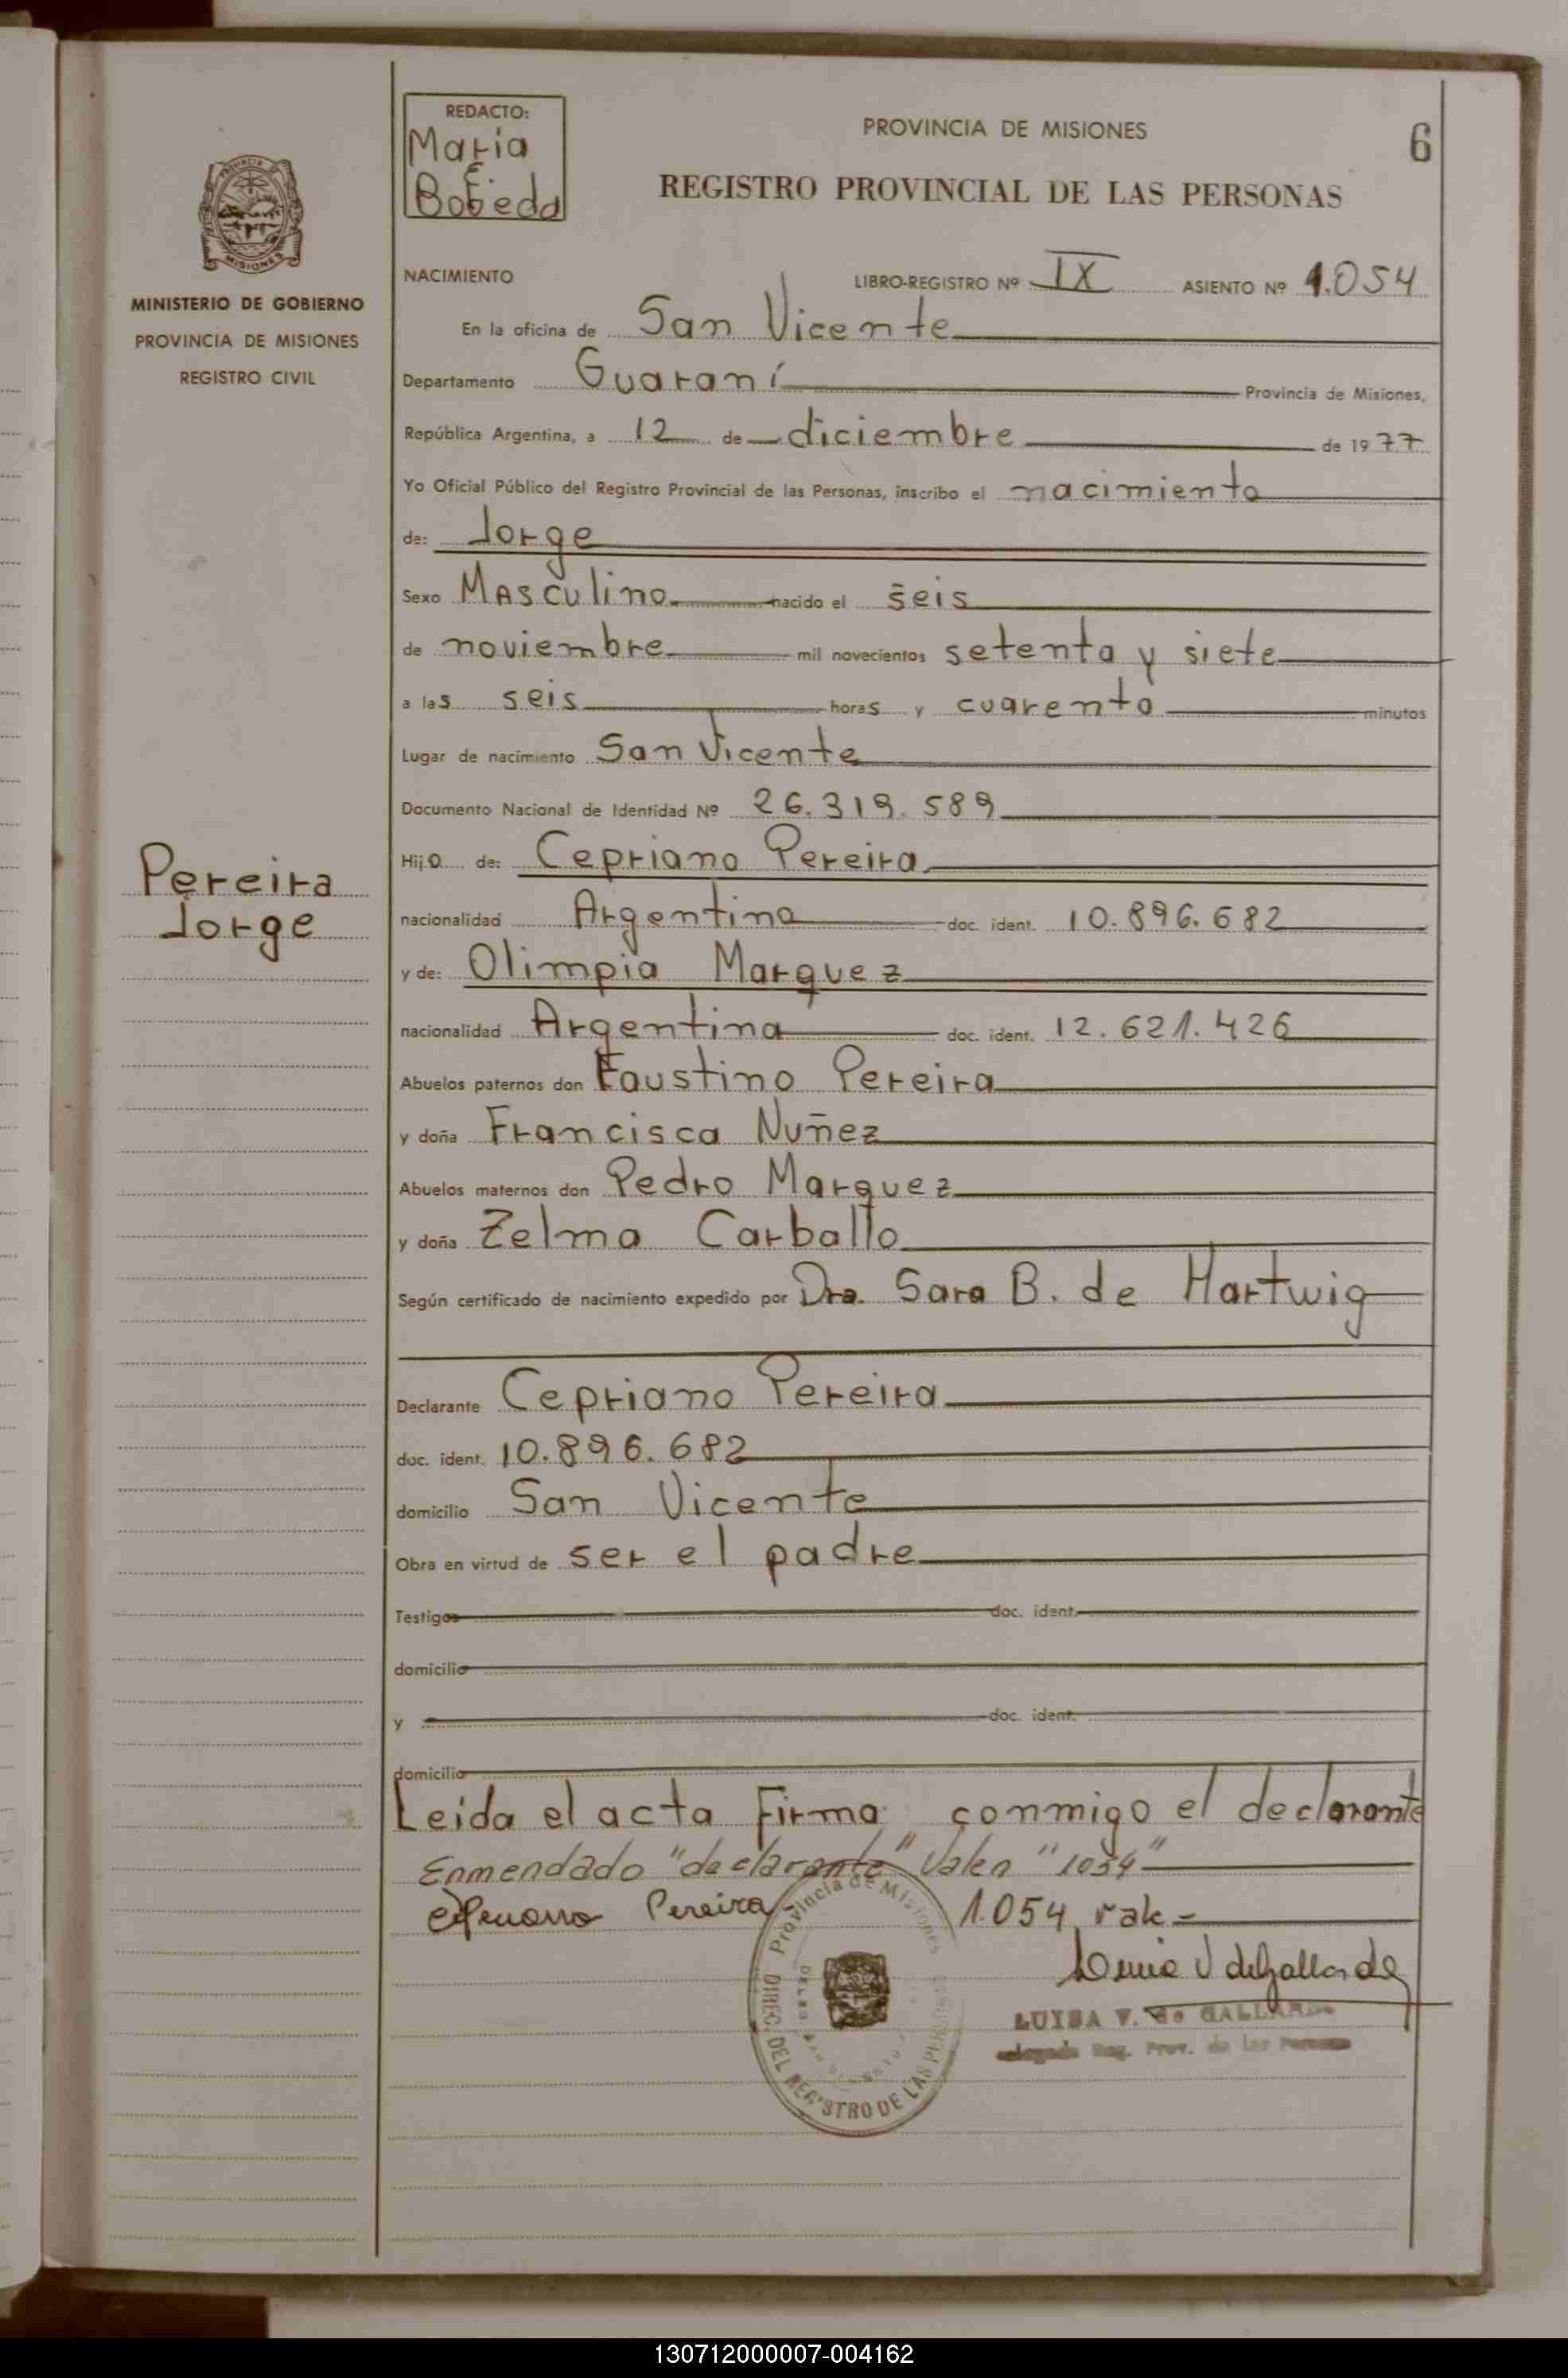 REDACTO:
Maria
E.
Bobeda
PROVINCIA DE MISIONES
6
REGISTRO PROVINCIAL DE LAS PERSONAS
PROVINCIA
MISIONES
MINISTERIO DE GOBIERNO
PROVINCIA DE MISIONES
REGISTRO CIVIL
NACIMIENTO LIBRO-REGISTRO Nº IX ASIENTO Nº 1.054
En la oficina de San Vicente
Departamento Guaraní Provincia de Misiones,
República Argentina, a 12 de diciembre de 1977
Yo Oficial Público del Registro Provincial de las Personas, inscribo el nacimiento
de: Jorge
Sexo Masculino nacido el seis
de noviembre mil novecientos setenta y siete
a las seis horas y cuarenta minutos
Lugar de nacimiento San Vicente
Documento Nacional de Identidad Nº 26.319.589
Pereira
Jorge
Hijo de: Cepriano Pereira
nacionalidad Argentina doc. ident. 10.896.682
y de: Olimpia Marquez
nacionalidad Argentina doc. ident. 12.621.426
Abuelos paternos don Faustino Pereira
y doña Francisca Nuñez
Abuelos maternos don Pedro Marquez
y doña Zelma Carballo
Según certificado de nacimiento expedido por Dra. Sara B. de Hartwig
Declarante Cepriano Pereira
doc. ident. 10.896.682
domicilio San Vicente
Obra en virtud de ser el padre
Testigos doc. ident.
domicilio
y doc. ident.
domicilio
Leida el acta Firma conmigo el declarante
Enmendado "declarante" Valen "1054"
Pereira 1.054 vale -
Provincia de Misiones
DIREC. DEL REGISTRO DE LAS PERSONAS
LUISA V. de GALLARDO
Reg. Prov. de las Personas
130712000007-004162